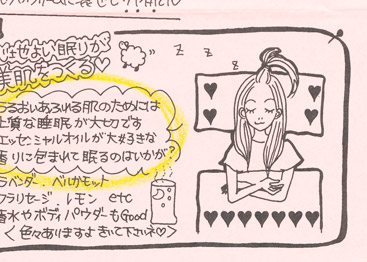 よい眠りが
美肌をつくる♡
うるおいあふれる肌のためには
上質な睡眠が大切です
エッセンシャルオイルが大好きな
香りに包まれて眠るのはいかが?
ラベンダー、ベルガモット
クラリセージ、レモン etc
香水やボディパウダーもGood
く色々ありますよ きいて下さいネ♡>
z z z